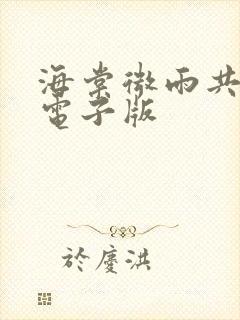 海棠微雨共
電子版
於慶洪